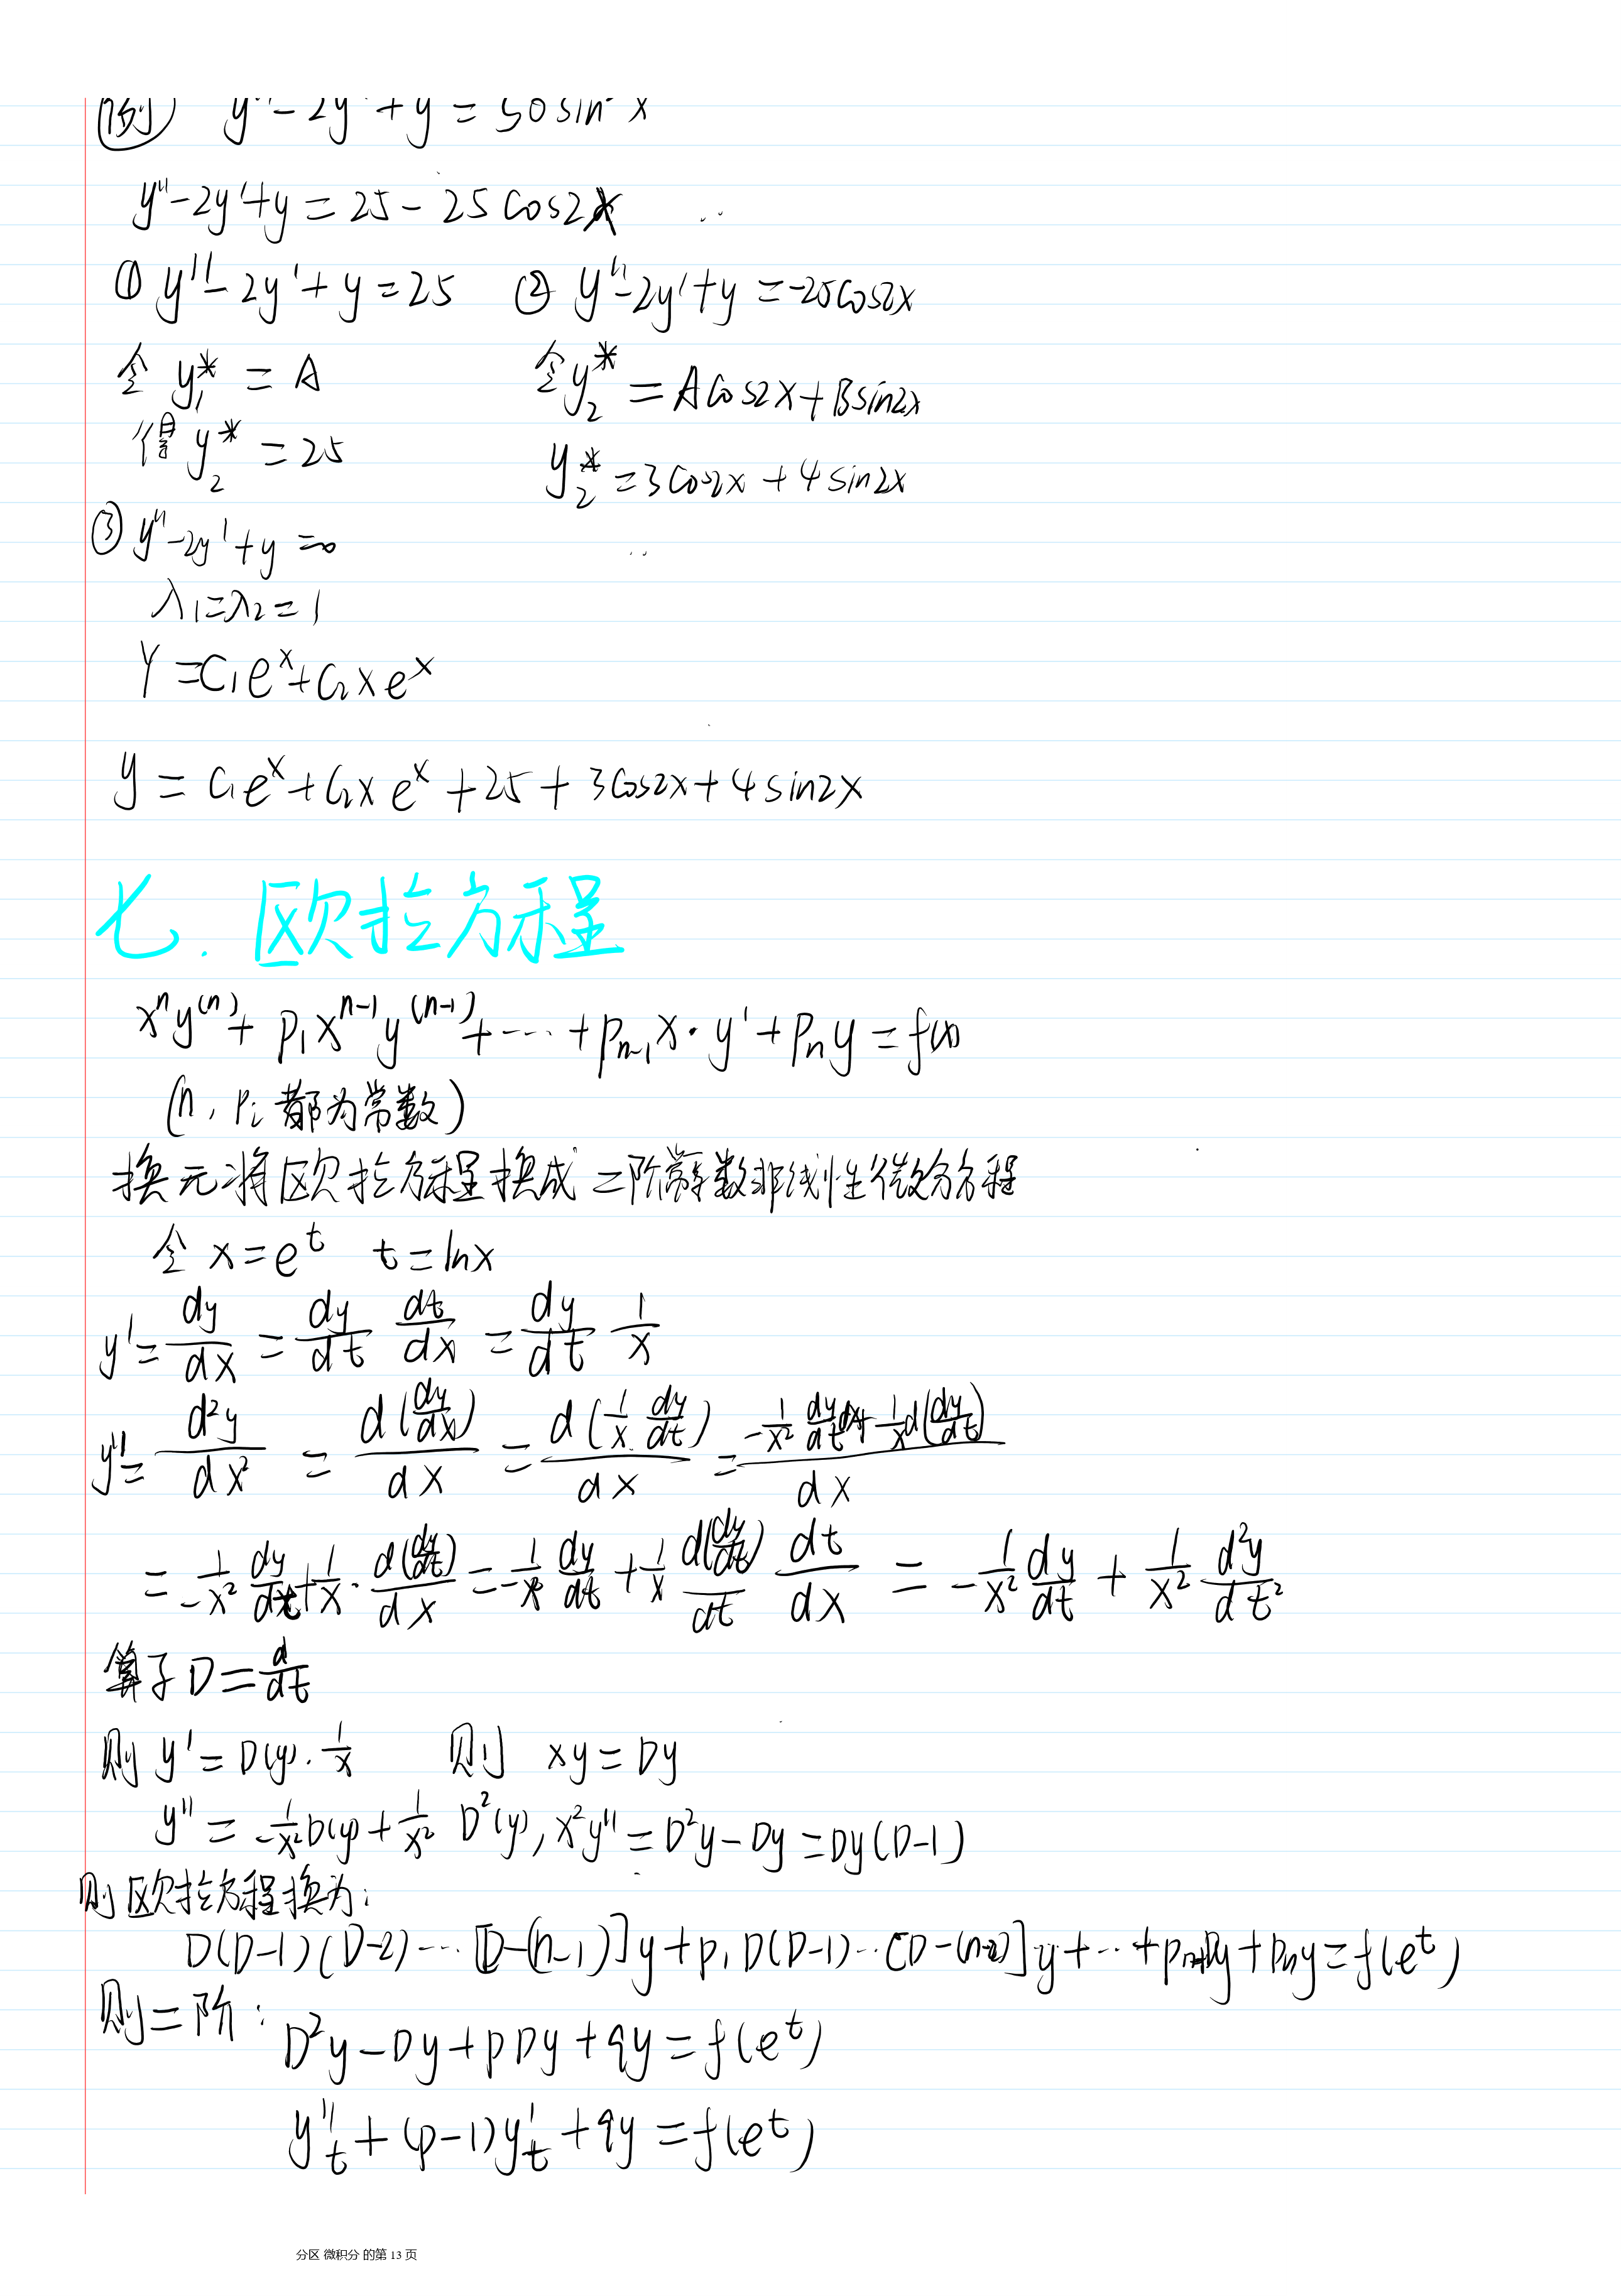 例 y''-2y'+y=50sin²x
y''-2y'+y=25-25cos2x
① y''-2y'+y=25 ② y''-2y'+y=-25cos2x
令 y₁*=A 令 y₂*=Acos2x+Bsin2x
得 y₂*=25 y₂*=3cos2x+4sin2x
③ y''-2y'+y=0
λ₁=λ₂=1
Y=C₁eˣ+C₂xeˣ
y=C₁eˣ+C₂xeˣ+25+3cos2x+4sin2x
七.欧拉方程
xⁿy⁽ⁿ⁾+p₁xⁿ⁻¹y⁽ⁿ⁻¹⁾+…+pₙ₋₁x·y'+pₙy=f(x)
(n, pᵢ都为常数)
换元将欧拉方程换成二阶常系数非线性微分方程
令 x=eᵗ t=lnx
y'=dy/dx=dy/dt dt/dx=dy/dt 1/x
y''=d²y/dx²=d(dy/dx)/dx=d(1/x dy/dt)/dx=(-1/x² dy/dt dx+1/x d(dy/dt))/dx
=-1/x² dy/dt+1/x·d(dy/dt)/dx=-1/x² dy/dt+1/x d(dy/dt)/dt dt/dx=-1/x² dy/dt+1/x² d²y/dt²
算子D=d/dt
则 y'=D(y)·1/x 则 xy=Dy
y''=-1/x²D(y)+1/x² D²(y), x²y''=D²y-Dy=Dy(D-1)
则欧拉方程换为:
D(D-1)(D-2)…[D-(n-1)]y+p₁D(D-1)…[D-(n-2)]y+…+pₙ₋₁Dy+pₙy=f(eᵗ)
则二阶:
D²y-Dy+pDy+qy=f(eᵗ)
y''ₜ+(p-1)y'ₜ+qy=f(eᵗ)
分区 微积分 的第 13 页